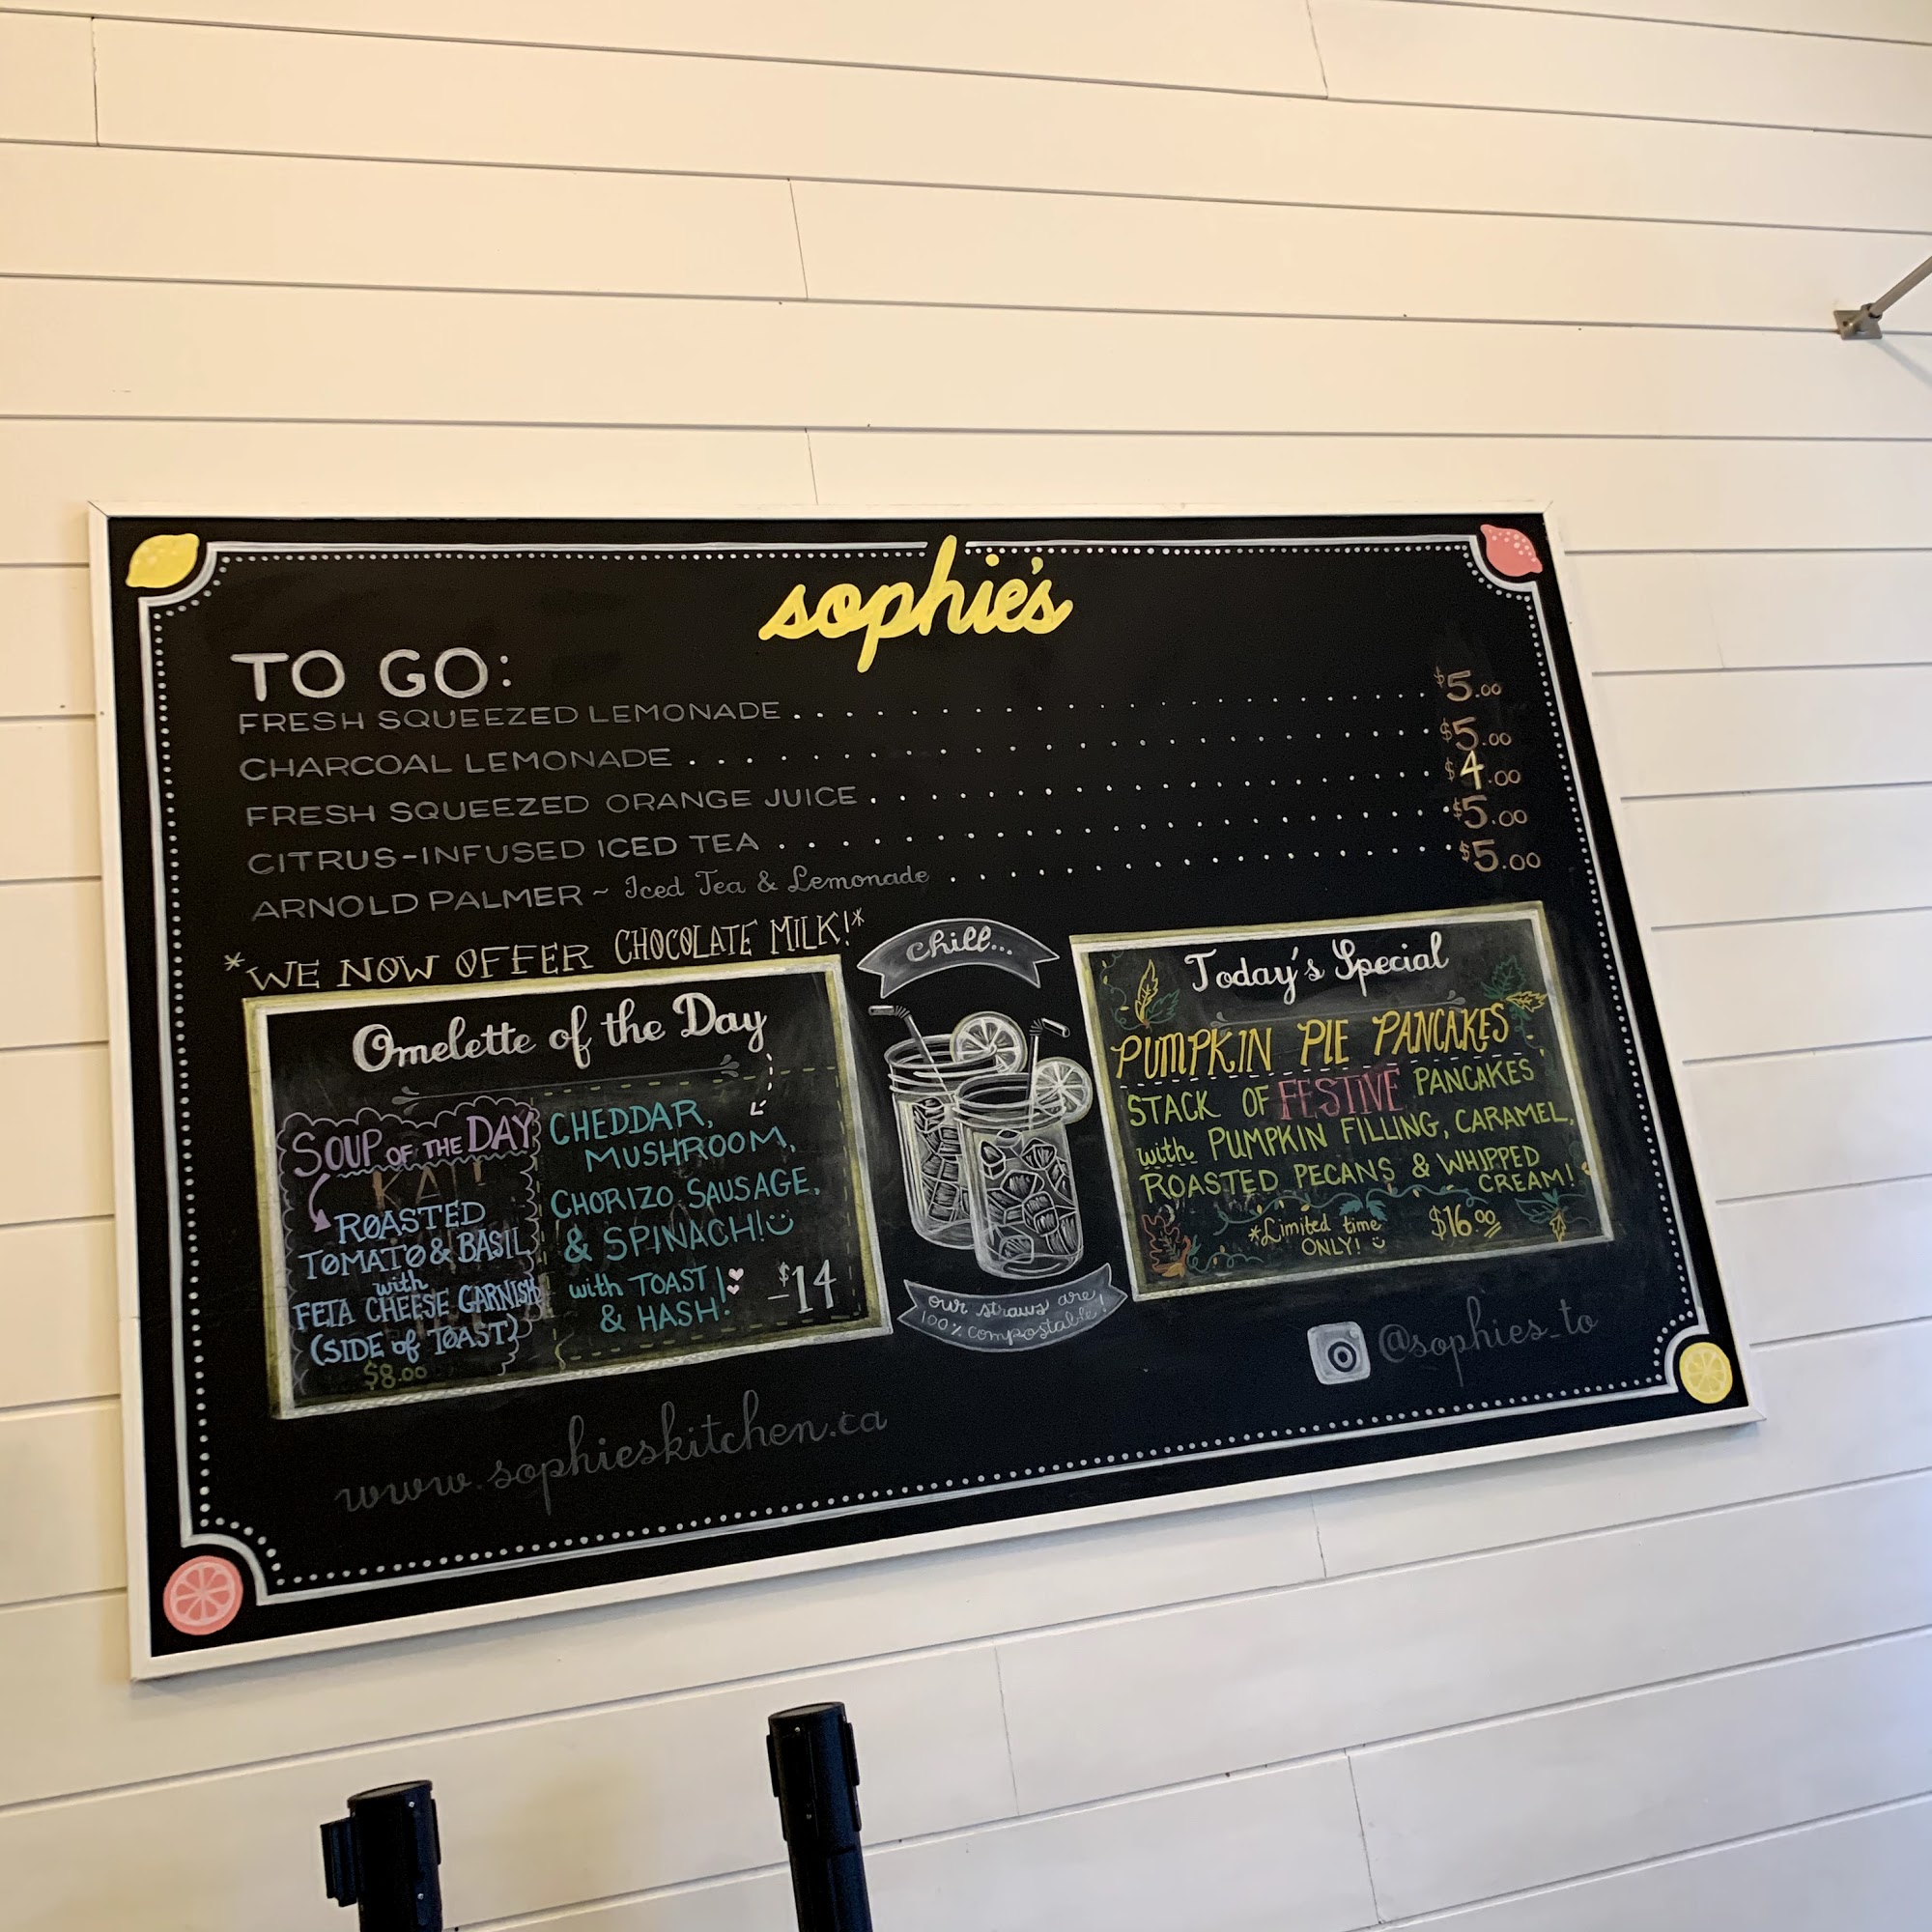 sophie's
TO GO:
FRESH SQUEEZED LEMONADE . . . . . . . . . . . . . . . . . . . . . . $5.00
CHARCOAL LEMONADE . . . . . . . . . . . . . . . . . . . . . . . . . . $5.00
FRESH SQUEEZED ORANGE JUICE . . . . . . . . . . . . . . . . . . . $4.00
CITRUS-INFUSED ICED TEA . . . . . . . . . . . . . . . . . . . . . . . $5.00
ARNOLD PALMER ~ Iced Tea & Lemonade . . . . . . . . . . . . . . . . . $5.00
*WE NOW OFFER CHOCOLATE MILK!*
Omelette of the Day
SOUP OF THE DAY
ROASTED
TOMATO & BASIL
with
FETA CHEESE GARNISH
(SIDE of TOAST)
$8.00
CHEDDAR,
MUSHROOM,
CHORIZO SAUSAGE,
& SPINACH!
with TOAST!
& HASH!
$14
chill...
our straws are
100% compostable!
Today's Special
PUMPKIN PIE PANCAKES
STACK OF FESTIVE PANCAKES
with PUMPKIN FILLING, CARAMEL,
ROASTED PECANS & WHIPPED
CREAM!
*Limited time
ONLY!
$16.00
@sophies_to
www.sophieskitchen.ca